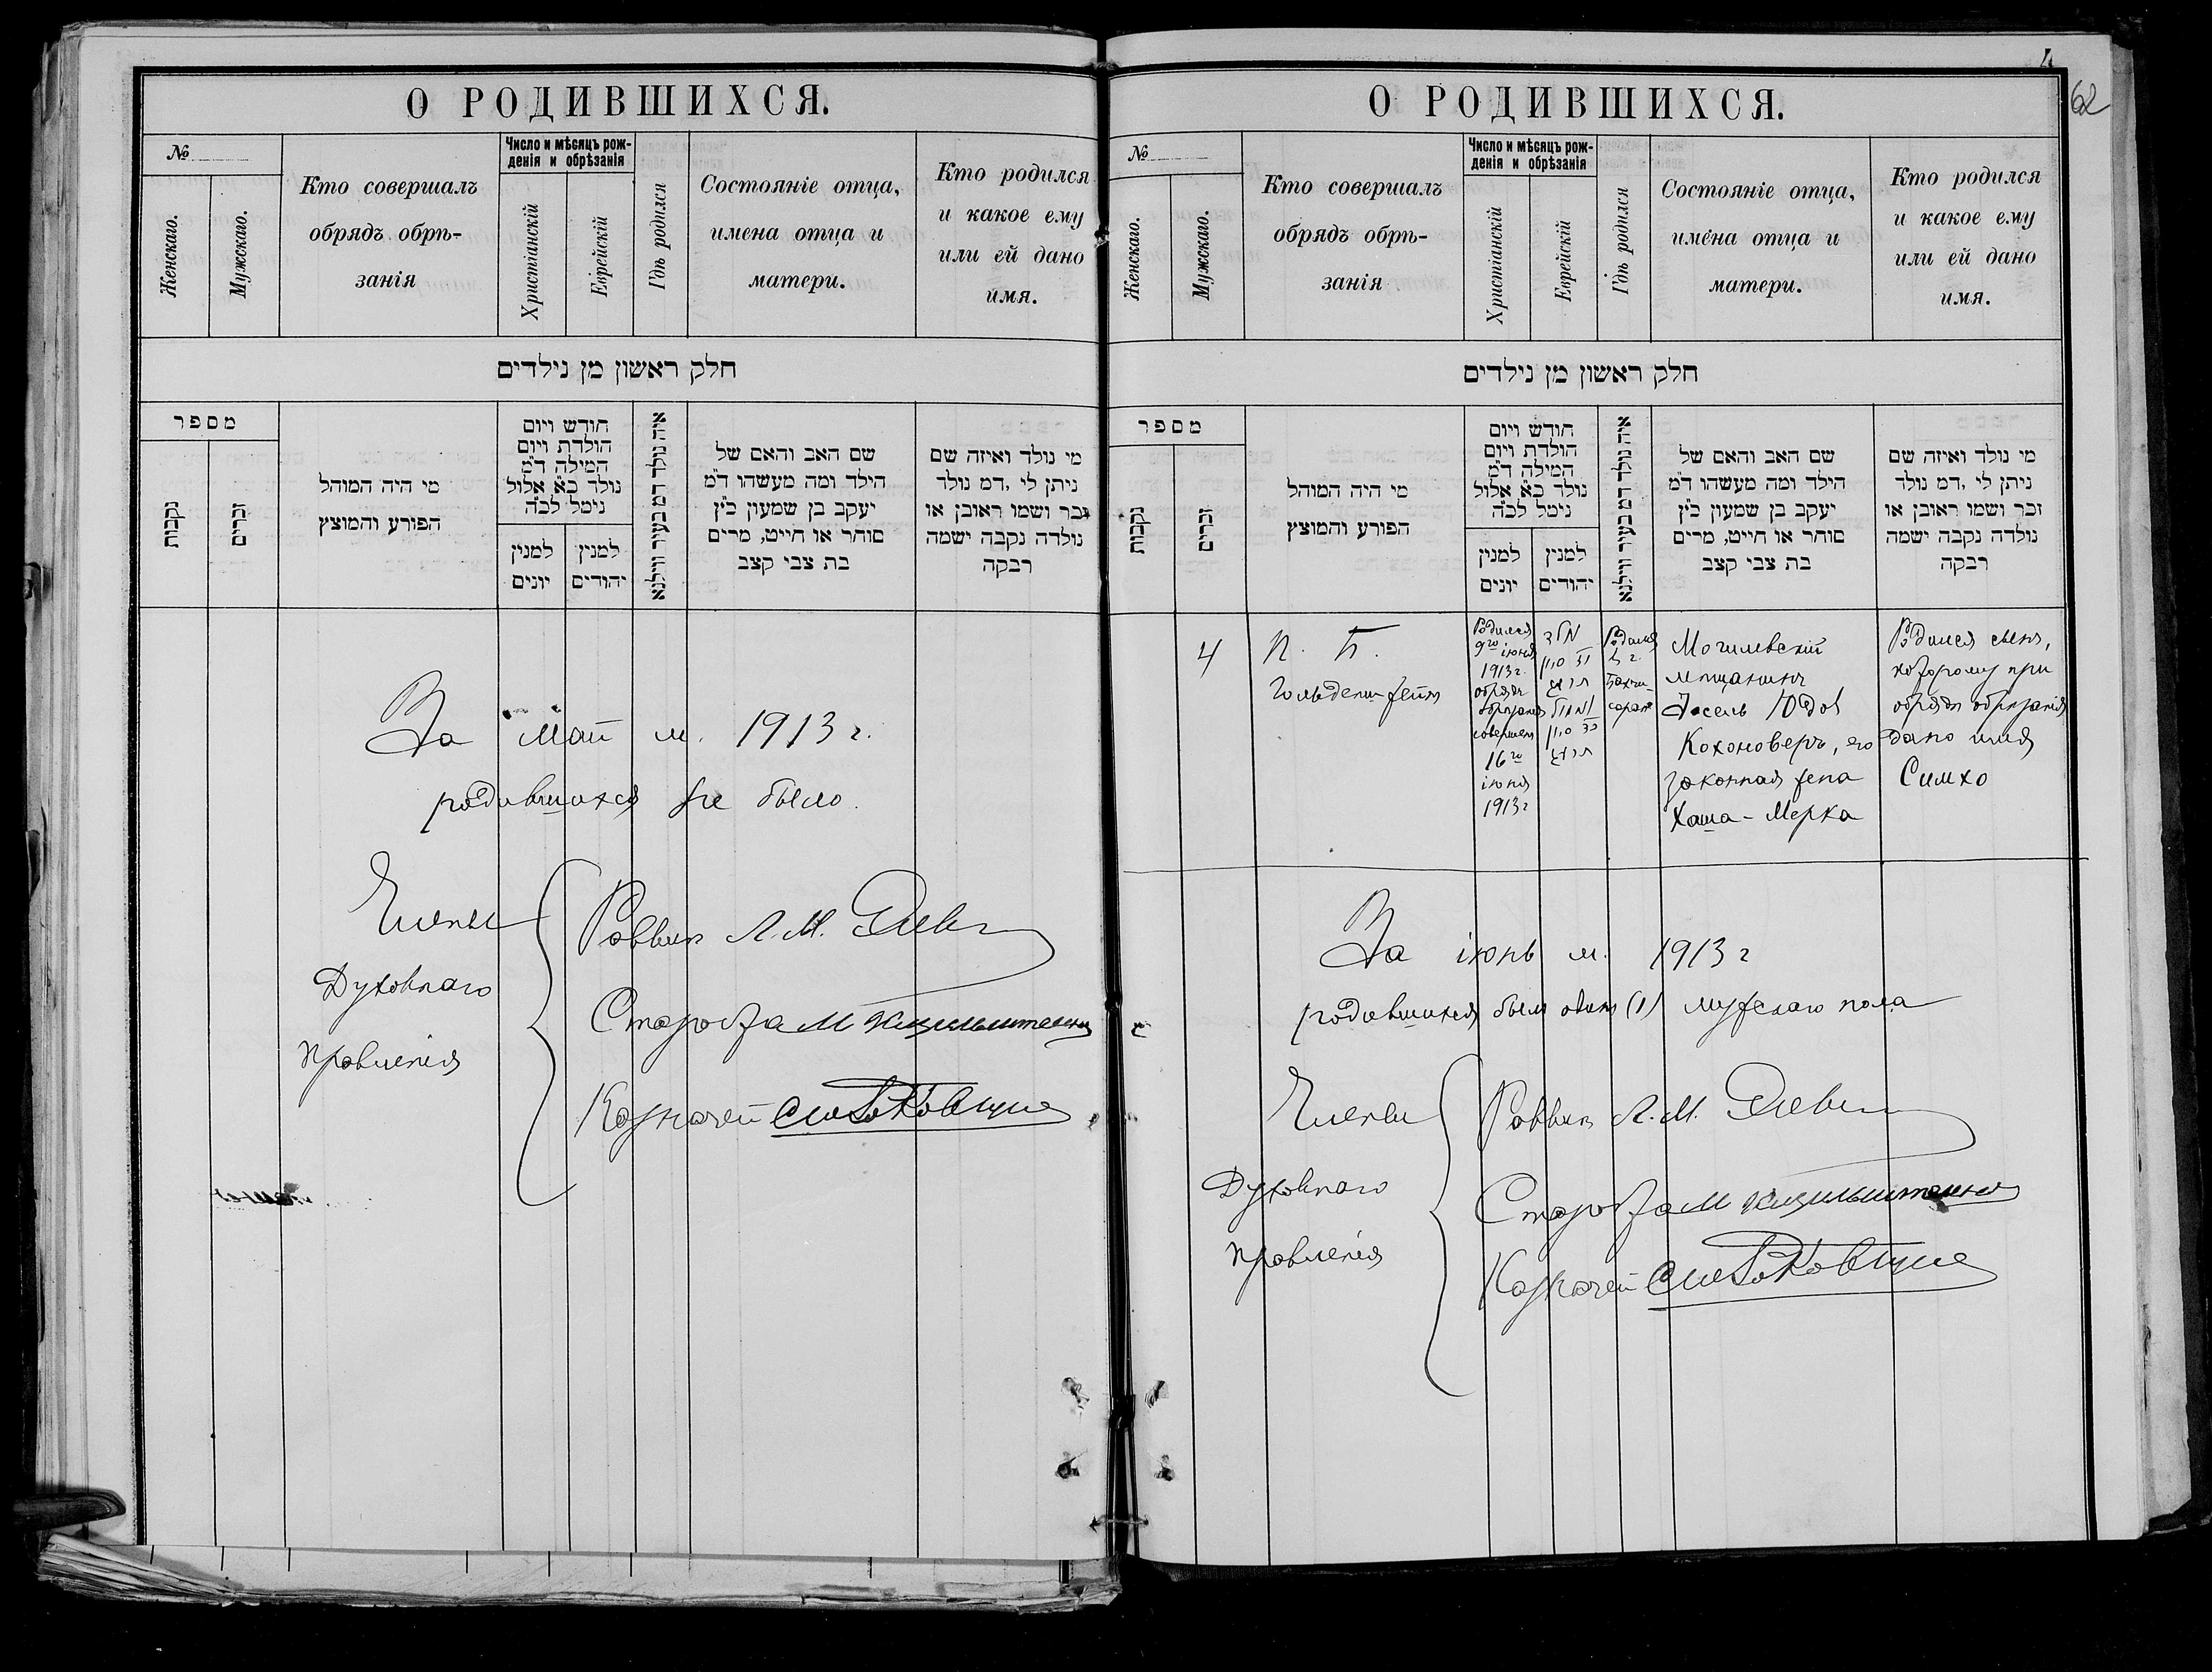 О РОДИВШИХСЯ.
№
Женскаго.
Мужскаго.
Кто совершалъ
обрядъ обрѣ-
занія
Число и мѣсяцъ рож-
денія и обрѣзанія
Христіанскій
Еврейскій
Гдѣ родился
Состояніе отца,
имена отца и
матери.
Кто родился
и какое ему
или ей дано
имя.
חלק ראשון מן נילדים
מספר
נקבות
זכרים
מי היה המוהל
הפורע והמוצץ
חודש ויום
הולדת ויום
המילה ד״מ
נולד כ״א אלול
נימל לכ״ה
למנין
יונים
למנין
יהודים
איה נולד דמ בעיר ווילנא
שם האב והאם של
הילד ומה מעשהו ד״מ
יעקב בן שמעון כ״ץ
סוחר או חייט, מרים
בת צבי קצב
מי נולד ואיזה שם
ניתן לי ,דמ נולד
זכר ושמו ראובן או
נולדה נקבה ישמה
רבקה
За май м. 1913 г.
родившихся не было.
Члены
Духовнаго
Правленія
Раввин Л. М.
Староста М
Казначей
4
62
О РОДИВШИХСЯ.
№
Женскаго.
Мужскаго.
Кто совершалъ
обрядъ обрѣ-
занія
Число и мѣсяцъ рож-
денія и обрѣзанія
Христіанскій
Еврейскій
Гдѣ родился
Состояніе отца,
имена отца и
матери.
Кто родился
и какое ему
или ей дано
имя.
חלק ראשון מן נילדים
מספר
נקבות
זכרים
מי היה המוהל
הפורע והמוצץ
חודש ויום
הולדת ויום
המילה ד״מ
נולד כ״א אלול
נימל לכ״ה
למנין
יונים
למנין
יהודים
איה נולד דמ בעיר ווילנא
שם האב והאם של
הילד ומה מעשהו ד״מ
יעקב בן שמעון כ״ץ
סוחר או חייט, מרים
בת צבי קצב
מי נולד ואיזה שם
ניתן לי ,דמ נולד
זכר ושמו ראובן או
נולדה נקבה ישמה
רבקה
4
П. Б.
Гольденштейн
Родился
9го іюня
1913 г.
обрядъ
обрѣзанія
совершен
16го
іюня
1913 г
נולד
סיון
תרעג
נימול
סיון
תרעג
Родился
в г.
Бахчи-
сараѣ
Могилевскій
мѣщанинъ
Іосель Юдов
Кохоноверъ, его
законная жена
Хаша - Мерка
Родился сынъ,
которому при
обрядѣ обрѣзанія
дано имя
Симхо
За іюнь м. 1913 г
родившихся был один (1) мужскаго пола
Члены
Духовнаго
Правленія
Раввин Л. М.
Староста М
Казначей